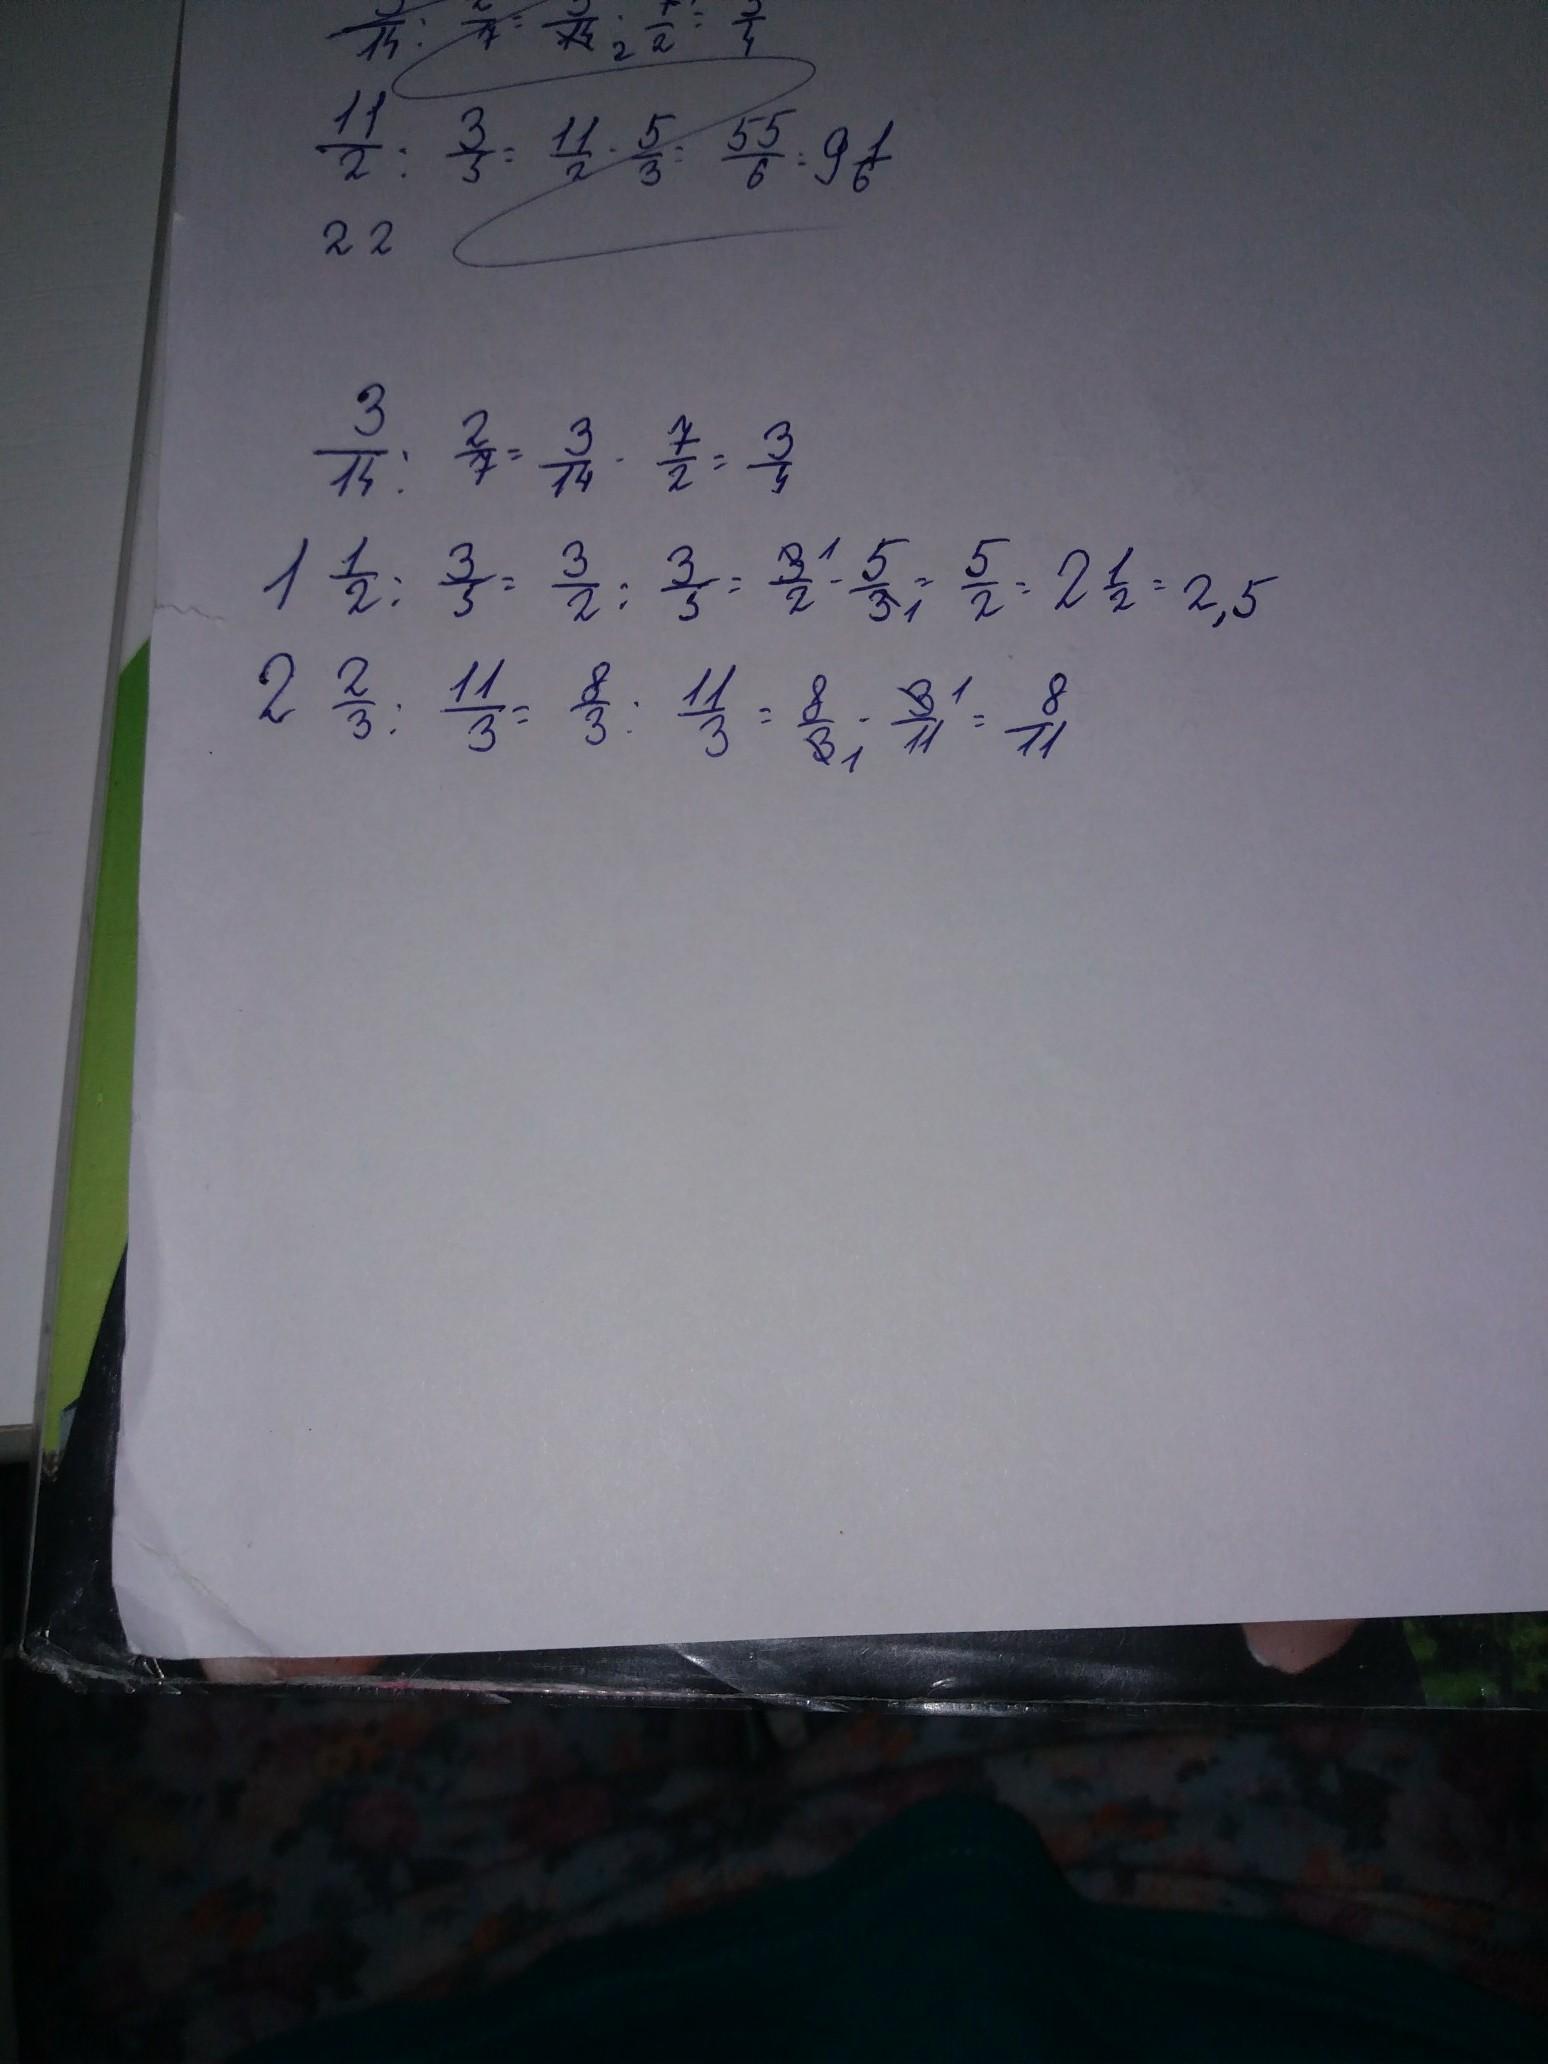 3/14 : 2/7 = 3/14 · 7/2 = 3/4
11/2 : 3/5 = 11/2 · 5/3 = 55/6 = 9 1/6
22
3/14 : 2/7 = 3/14 · 7/2 = 3/4
1 1/2 : 3/5 = 3/2 : 3/5 = 3¹/2 · 5/3₁ = 5/2 = 2 1/2 = 2,5
2 2/3 : 11/3 = 8/3 : 11/3 = 8/3₁ · 3¹/11 = 8/11